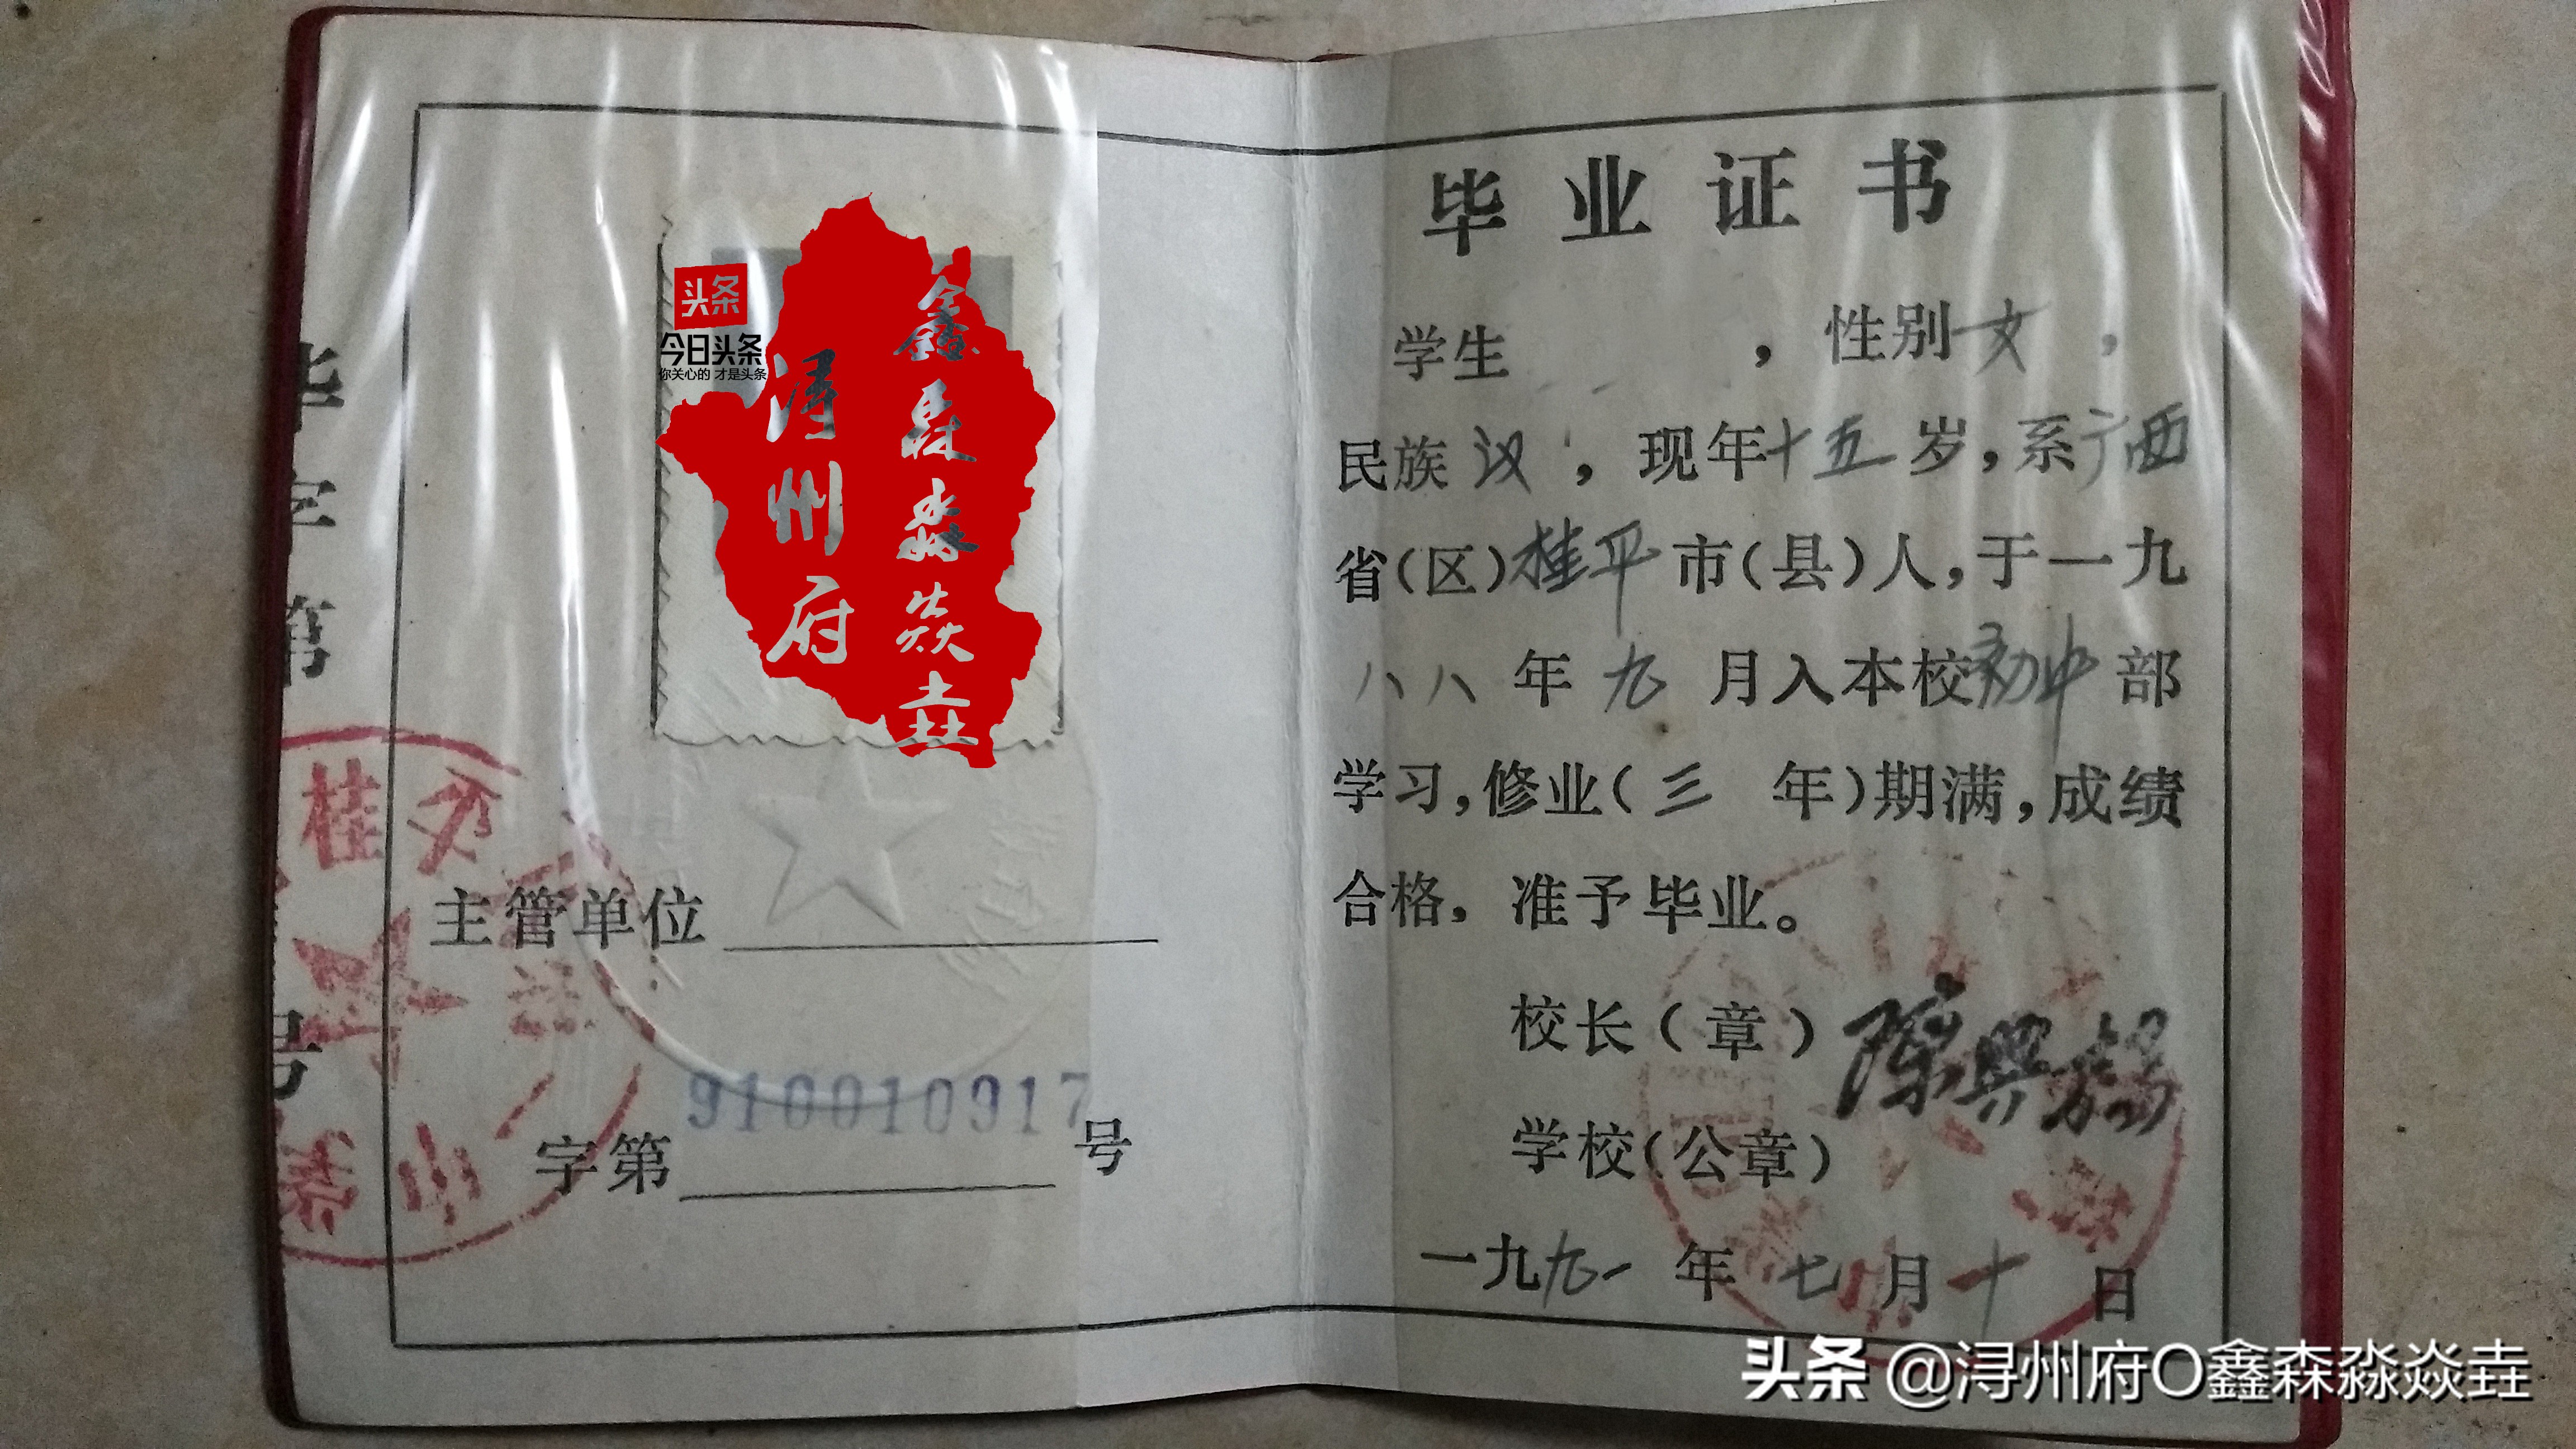 毕字第
号
头条
今日头条
你关心的 才是头条
浔州府
鑫森淼焱垚
桂
主管单位
910010917
字第 号
毕业证书
学生 ，性别 女，
民族 汉，现年十五岁，系广西
省(区)桂平市(县)人，于一九
八八年九月入本校初中部
学习，修业(三 年)期满，成绩
合格，准予毕业。
校长(章) 陈兴
学校(公章)
一九九一年七月十日
头条 @浔州府O鑫森淼焱垚